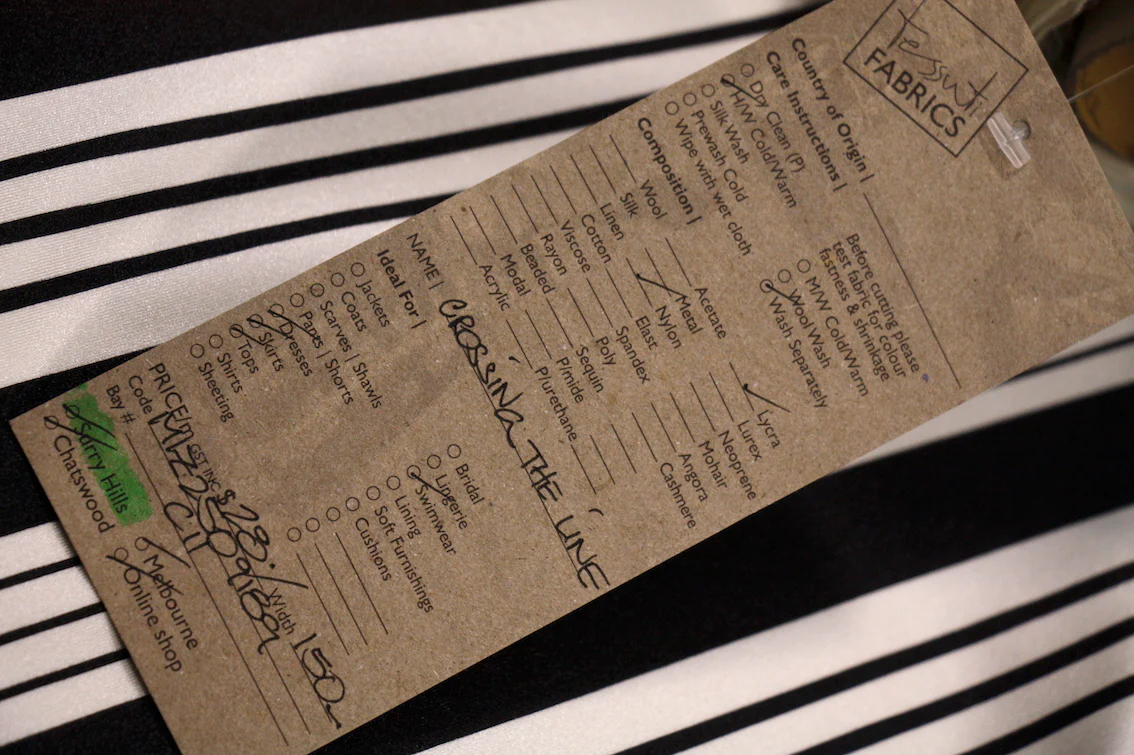 Tessuti
FABRICS
Country of Origin |
Care Instructions |
Dry Clean (P)
H/W Cold/Warm
Silk Wash
Prewash Cold
Wipe with wet cloth
Before cutting please
test fabric for colour
fastness & shrinkage
M/W Cold/Warm
Wool Wash
Wash Separately
Composition |
Wool
Silk
Linen
Cotton
Viscose
Rayon
Beaded
Modal
Acrylic
Acetate
Metal
Nylon
Elast
Spandex
Poly
Sequin
P/mide
P/urethane
Lycra
Lurex
Neoprene
Mohair
Angora
Cashmere
NAME | CROSSING THE LINE
Ideal For |
Jackets
Coats
Scarves | Shawls
Pants | Shorts
Dresses
Skirts
Tops
Shirts
Sheeting
Bridal
Lingerie
Swimwear
Lining
Soft Furnishings
Cushions
PRICE/m GST INC $28./ Width 150
Code
Bay # C11
Surry Hills
Chatswood
Melbourne
Online shop